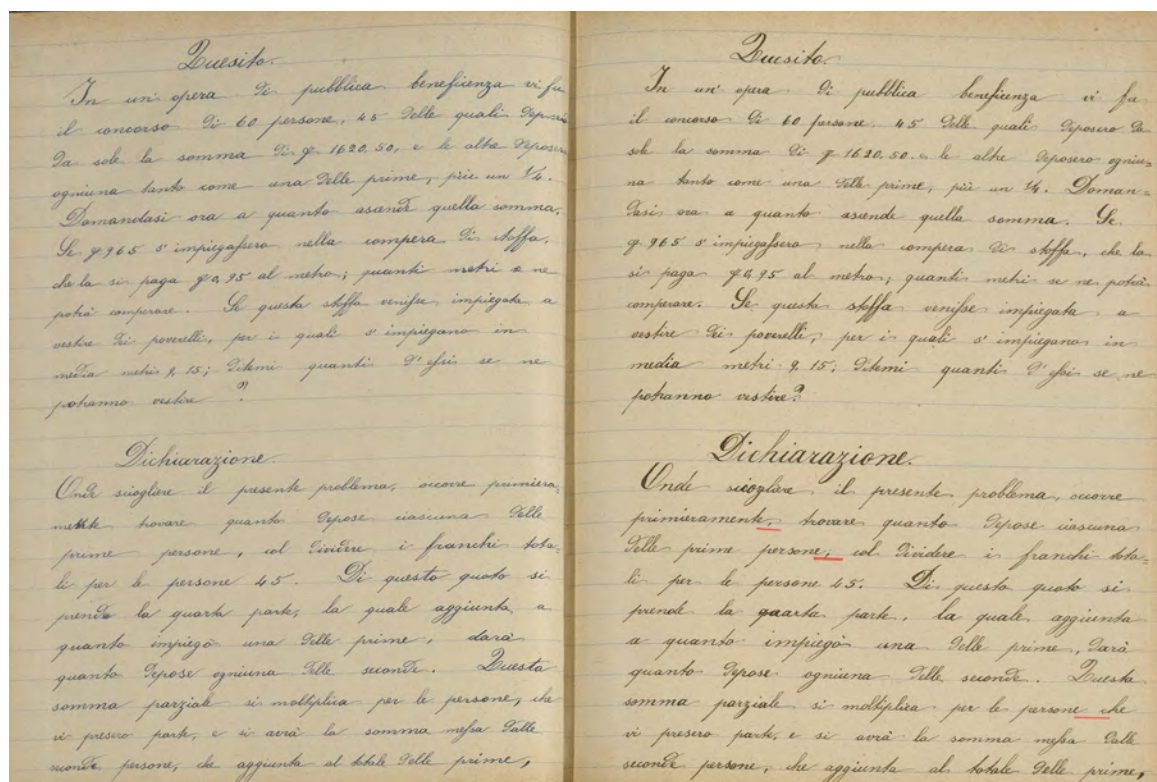 Quesito.
In un' opera di pubblica beneficenza vi fu
il concorso di 60 persone, 45 delle quali deposero
da sole la somma di fr 1620,50, e le altre deposero
ogniuna tanto come una delle prime, più un 1/4.
Domandasi ora a quanto ascende quella somma.
Se fr 965 s' impiegassero nella compera di stoffa,
che la si paga fr 0,95 al metro; quanti metri se ne
potrà comperare. Se questa stoffa venisse impiegata a
vestire dei poverelli, per i quali s' impiegano in
media metri 9,15; ditemi quanti d' essi se ne
potranno vestire?
Dichiarazione.
Onde sciogliere il presente problema, occorre primiera=
mente trovare quanto depose ciascuna delle
prime persone, col dividere i franchi tota=
li per le persone 45. Di questo quoto si
prende la quarta parte, la quale aggiunta, a
quanto impiegò una delle prime, darà
quanto depose ogniuna delle seconde. Questa
somma parziale si moltiplica per le persone, che
vi presero parte, e si avrà la somma messa dalle
seconde persone, che aggiunta al totale delle prime,
Quesito.
In un' opera di pubblica beneficenza vi fu
il concorso di 60 persone. 45 delle quali deposero da
sole la somma di fr 1620,50, e le altre deposero ogniu=
na tanto come una delle prime, più un 1/4. Doman=
dasi ora a quanto ascende quella somma. Se
fr 965 s' impiegassero nella compera di stoffa, che la
si paga fr 0,95 al metro; quanti metri se ne potrà
comperare. Se questa stoffa venisse impiegata a
vestire dei poverelli, per i quali s' impiegano in
media metri 9,15; ditemi quanti d' essi se ne
potranno vestire?
Dichiarazione.
Onde sciogliere il presente problema, occorre
primieramente, trovare quanto depose ciascuna
delle prime persone, col dividere i franchi tota=
li per le persone 45. Di questo quoto si
prende la quarta parte, la quale aggiunta
a quanto impiegò una delle prime, darà
quanto depose ogniuna delle seconde. Questa
somma parziale si moltiplica per le persone che
vi presero parte, e si avrà la somma messa dalle
seconde persone, che aggiunta al totale delle prime,